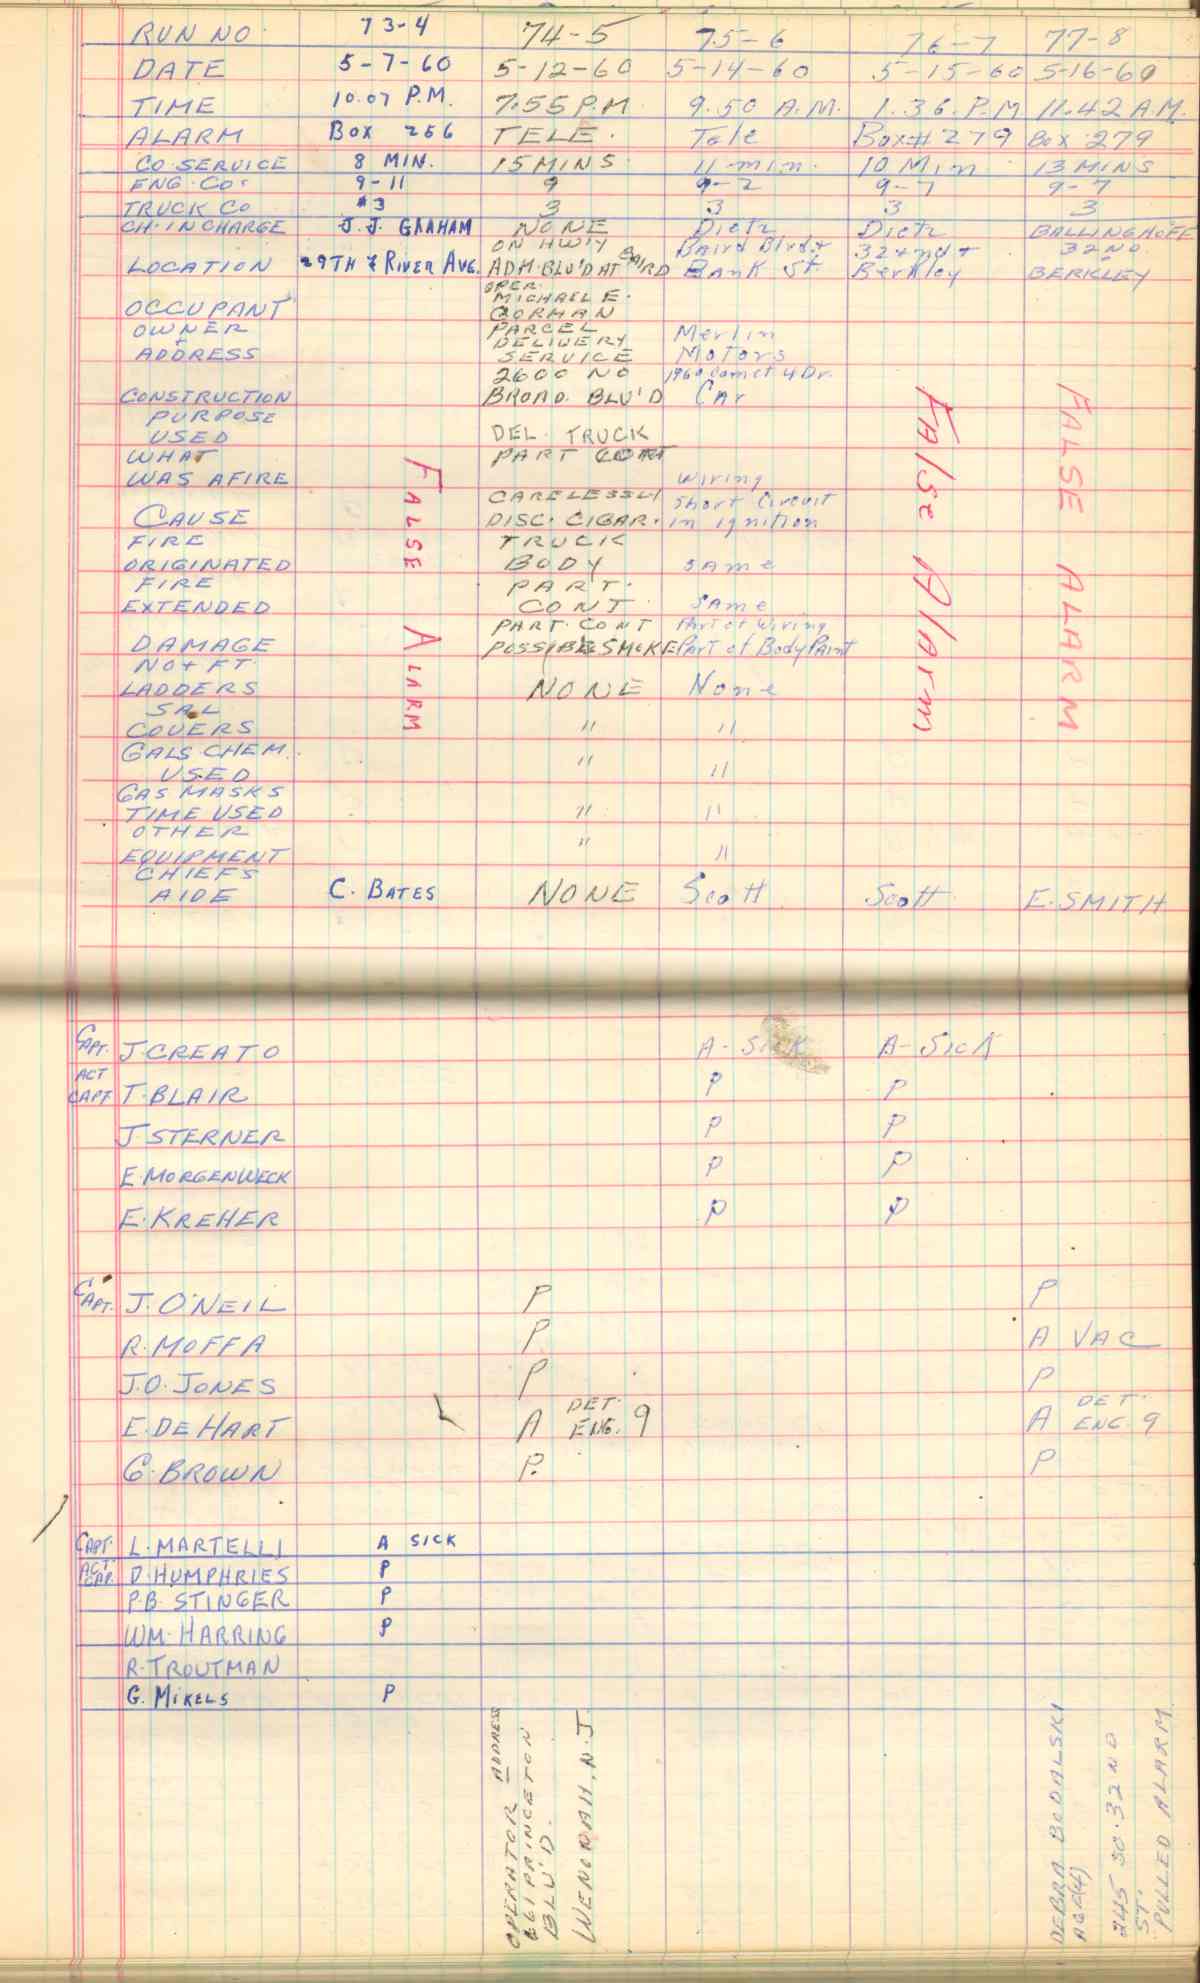 RUN NO. 73-4 74-5 75-6 76-7 77-8
DATE 5-7-60 5-12-60 5-14-60 5-15-60 5-16-60
TIME 10.07 P.M. 7.55 P.M 9.50 A.M. 1.36.P.M 11.42 A.M.
ALARM Box 256 TELE. Tele Box# 279 Box 279
CO SERVICE 8 MIN. 15 MINS 11 min. 10 Min 13 MINS
ENG. CO. 9-11 9 9-2 9-7 9-7
TRUCK CO #3 3 3 3 3
CH. IN CHARGE J.J. GRAHAM NONE Dietz Dietz BALLINGHOFF
ON HWY Baird Blvd + 32nd + 32ND
LOCATION 29TH & RIVER AVE. ADM. BLV'D AT BAIRD Bank St Berkley BERKLEY
OPER.
MICHAEL E.
OCCUPANT GORMAN
OWNER PARCEL Merlin
+ DELIVERY
ADDRESS SERVICE Motors
2600 NO 1960 Comet 4 Dr.
CONSTRUCTION BROAD. BLV'D Car
PURPOSE
USED DEL. TRUCK
WHAT PART CONT
WAS AFIRE Wiring
CARELESSLY Short Circuit
CAUSE DISC. CIGAR. in ignition
FIRE TRUCK
ORIGINATED BODY same
FIRE PART.
EXTENDED CONT. same
PART. CONT Part of Wiring
DAMAGE POSSIBLE SMOKE Part of Body Paint
NO + FT.
LADDERS NONE None
SAL
COVERS " "
GALS CHEM.
USED " "
GAS MASKS
TIME USED " "
OTHER
EQUIPMENT " "
CHIEFS
AIDE C. BATES NONE Scott Scott E. SMITH
FALSE ALARM
False Alarm
FALSE ALARM
CAPT. J. CREATO A- SICK A- SICK
ACT CAPT T. BLAIR P P
J. STERNER P P
E. MORGENWECK P P
E. KREHER P P
CAPT. J. O'NEIL P P
R. MOFFA P A VAC
J.O. JONES P P
E. DE HART A DET. ENG. 9 A DET. ENG 9
G. BROWN P. P
CAPT. L. MARTELLI A SICK
ACT. CAP. D. HUMPHRIES P
P.B. STINGER P
WM. HARRING P
R. TROUTMAN
G. MIKELS P
OPERATOR ADDRESS
PRINCETON
BLV'D.
WENONAH, N.J.
DEBRA BODALSKI
AGE (4)
245 SO. 32ND
ST.
PULLED ALARM